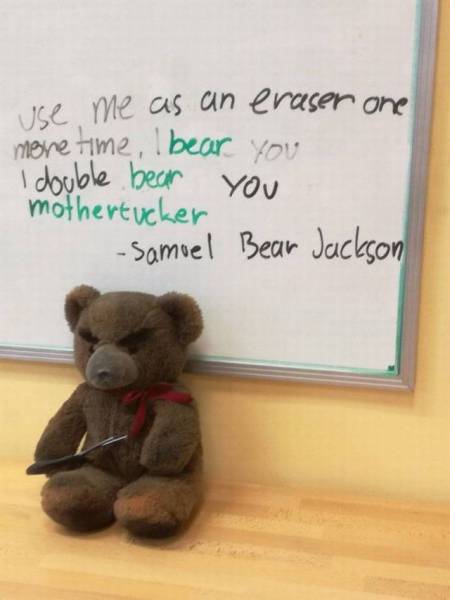 use me as an eraser one
more time, I bear you
I double bear you
mothertucker
-Samuel Bear Jackson